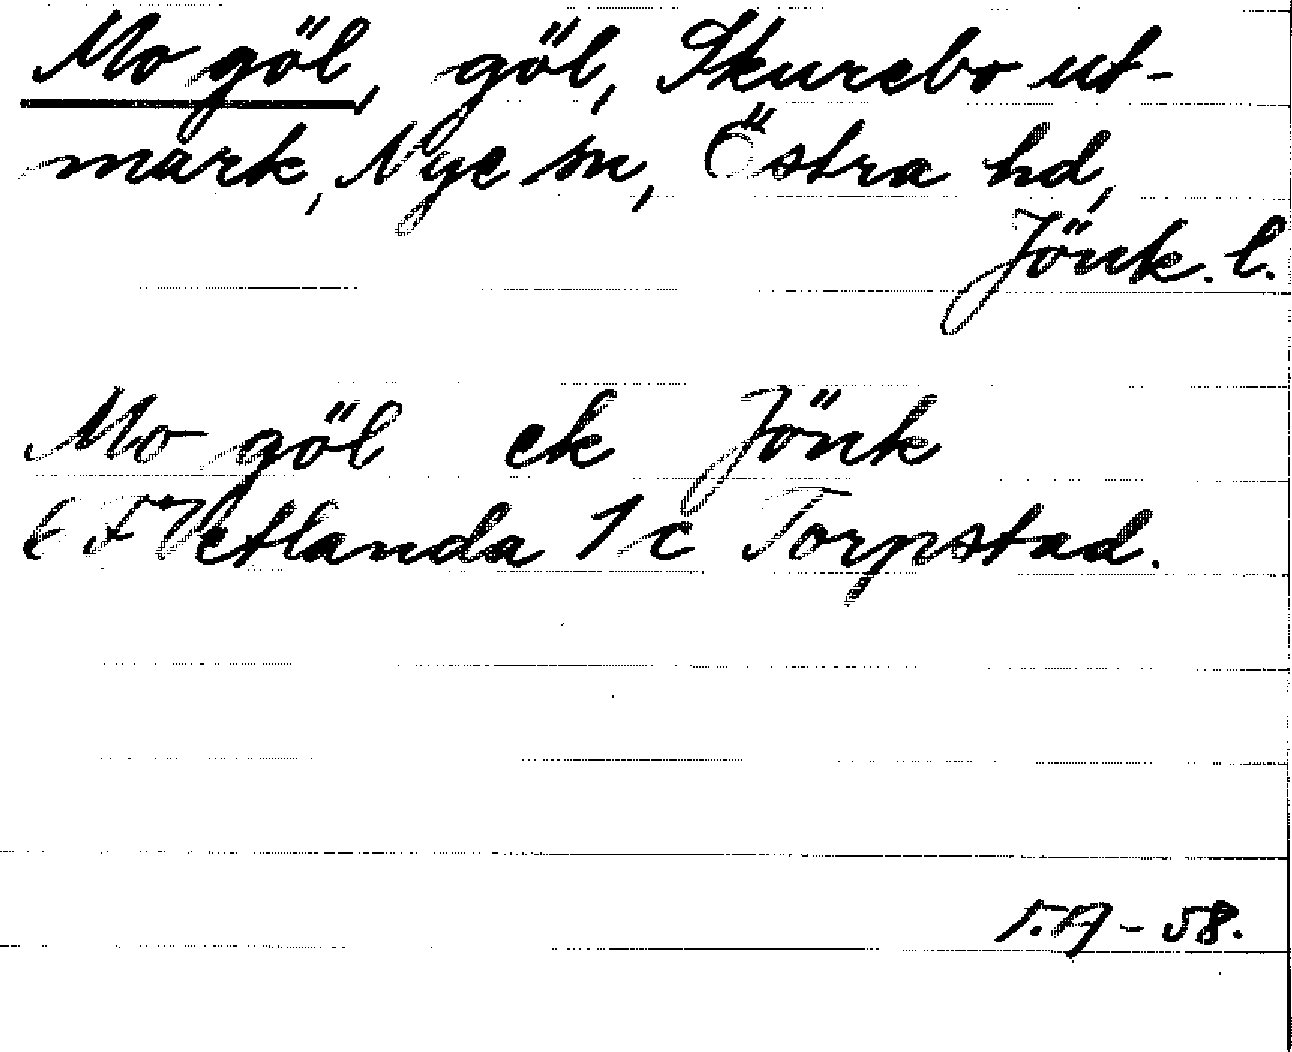 Mo göl, göl, Skurebo ut-
mark, Nye sn, Östra hd,
Jönk. l.
Mo göl ek Jönk
6 F Vetlanda 1 c Torpstad.
I.A - 58.